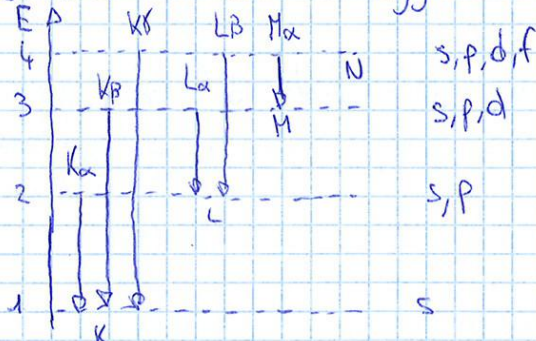 E Kγ Lβ Mα
4 N s,p,d,f
Kβ Lα
3 M s,p,d
Kα
2 L s,p
1 s
K